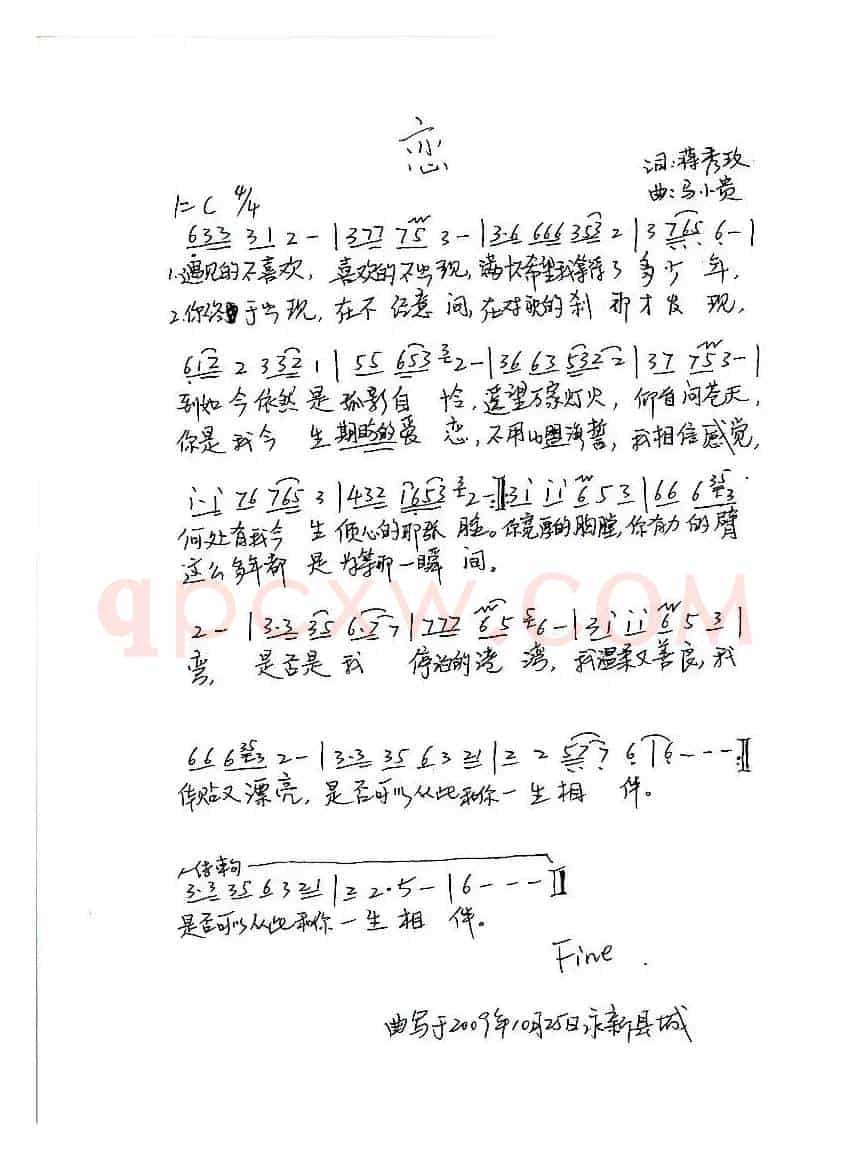 恋
词:蒋秀玫
曲:马小贵
1=C 4/4
633 31 2 - | 377 75 3 - | 3·6 666 353 2 | 3 765 6 - |
1.遇见的不喜欢, 喜欢的不出现, 满怀希望我等待了多少年,
2.你终于出现, 在不经意间, 在对歌的刹那才发现,
612 2 3 332 1 | 55 653 2 - | 36 63 532 2 | 37 753 - |
到如今依然是孤影自怜, 遥望万家灯火, 仰首问苍天,
你是我今生期盼的爱恋, 不用山盟海誓, 我相信感觉,
i·i 76 765 3 | 432 i653 2 - :‖: 3i ii 6 5 3 | 66 6 353
何处有我今生倾心的那张脸。你宽厚的胸膛,你有力的臂
这么多年都是为等那一瞬间。
2 - | 3·3 35 6·7 7 | 777 65 6 - | 3i ii 6 5 3 |
弯, 是否是我停泊的港湾, 我温柔又善良, 我
66 6 353 2 - | 3·3 35 6 3 21 | 2 2 57 7 6 | 6 - - - :‖
体贴又漂亮, 是否可以从此和你一生相伴。
结束句
3·3 35 6 3 21 | 2 2·5 - | 6 - - - ‖
是否可以从此和你一生相伴。
Fine.
曲写于2009年10月25日永新县城
qpcxw.COM